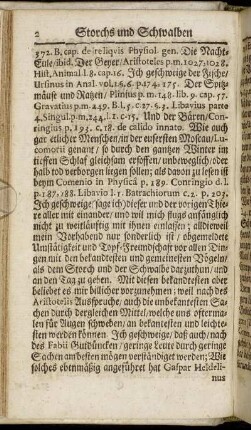 2 Storchs und Schwalben
372. B. cap. de reliqvis Physiol. gen. Die Nacht-
Eule/ibid. Der Geyer/Aristoteles p.m.1027.1028.
Hist. Animal l.8. cap.16. Ich geschweige der Fische/
Ursinus in Anal. vol.1.6. p.174. 175. Der Spitz-
mäuse und Ratzen/ Plinius p.m. 148. lib. 9. cap. 57.
Gravatius p.m. 449. B. l. 5. c. 27. 6. 3. Libavius parte
4. Singul. p.m. 244. l. 2. c. 15. Und der Bären/Con-
ringius p. 193. c. 18. de calido innato. Wie auch
gar etlicher Menschen/in der eusersten Moscau/Lu-
comorii genant / so durch den gantzen Winter im
tieffen Schlaf gleichsam ersoffen/ unbeweglich/oder
halb tod verborgen liegen sollen; als davon zu lesen ist
beym Comenio in Physicâ p. 189. Conringio d.l.
p.187.188. Libavio l. 1. Batrachiorum c. 2. p. 303.
Ich geschweige/sage ich/dieser und der vorigen Thie-
re aller mit einander/ und wil mich flugs anfänglich
nicht zu weitläuftig mit ihnen einlassen ; alldieweil
mein Vorhabend nur sonderlich ist / obgemeldete
Unstätigkeit und Topf-Fremdschaft vor allen Din-
gen mit den bekandtesten und gemeinesten Vögeln/
als dem Storch und der Schwalbe darzuthun/ und
an den Tag zu geben. Mit diesen bekandtesten aber
beliebet es mir billicher vorzunehmen: weil nach des
Aristotelis Ausspruche/ auch die unbekantesten Sa-
chen durch dergleichen Mittel/welche uns oftermа-
len für Augen schweben/ an bekantesten und leichte-
sten werden können Ich geschweige / daß auch/nach
des Fabii Gutdüncken/ geringe Leute durch geringe
Sachen am besten mögen verständiget werden; Wie
solches ebenmäßig angeführet hat Caspar Heldeli-
nus